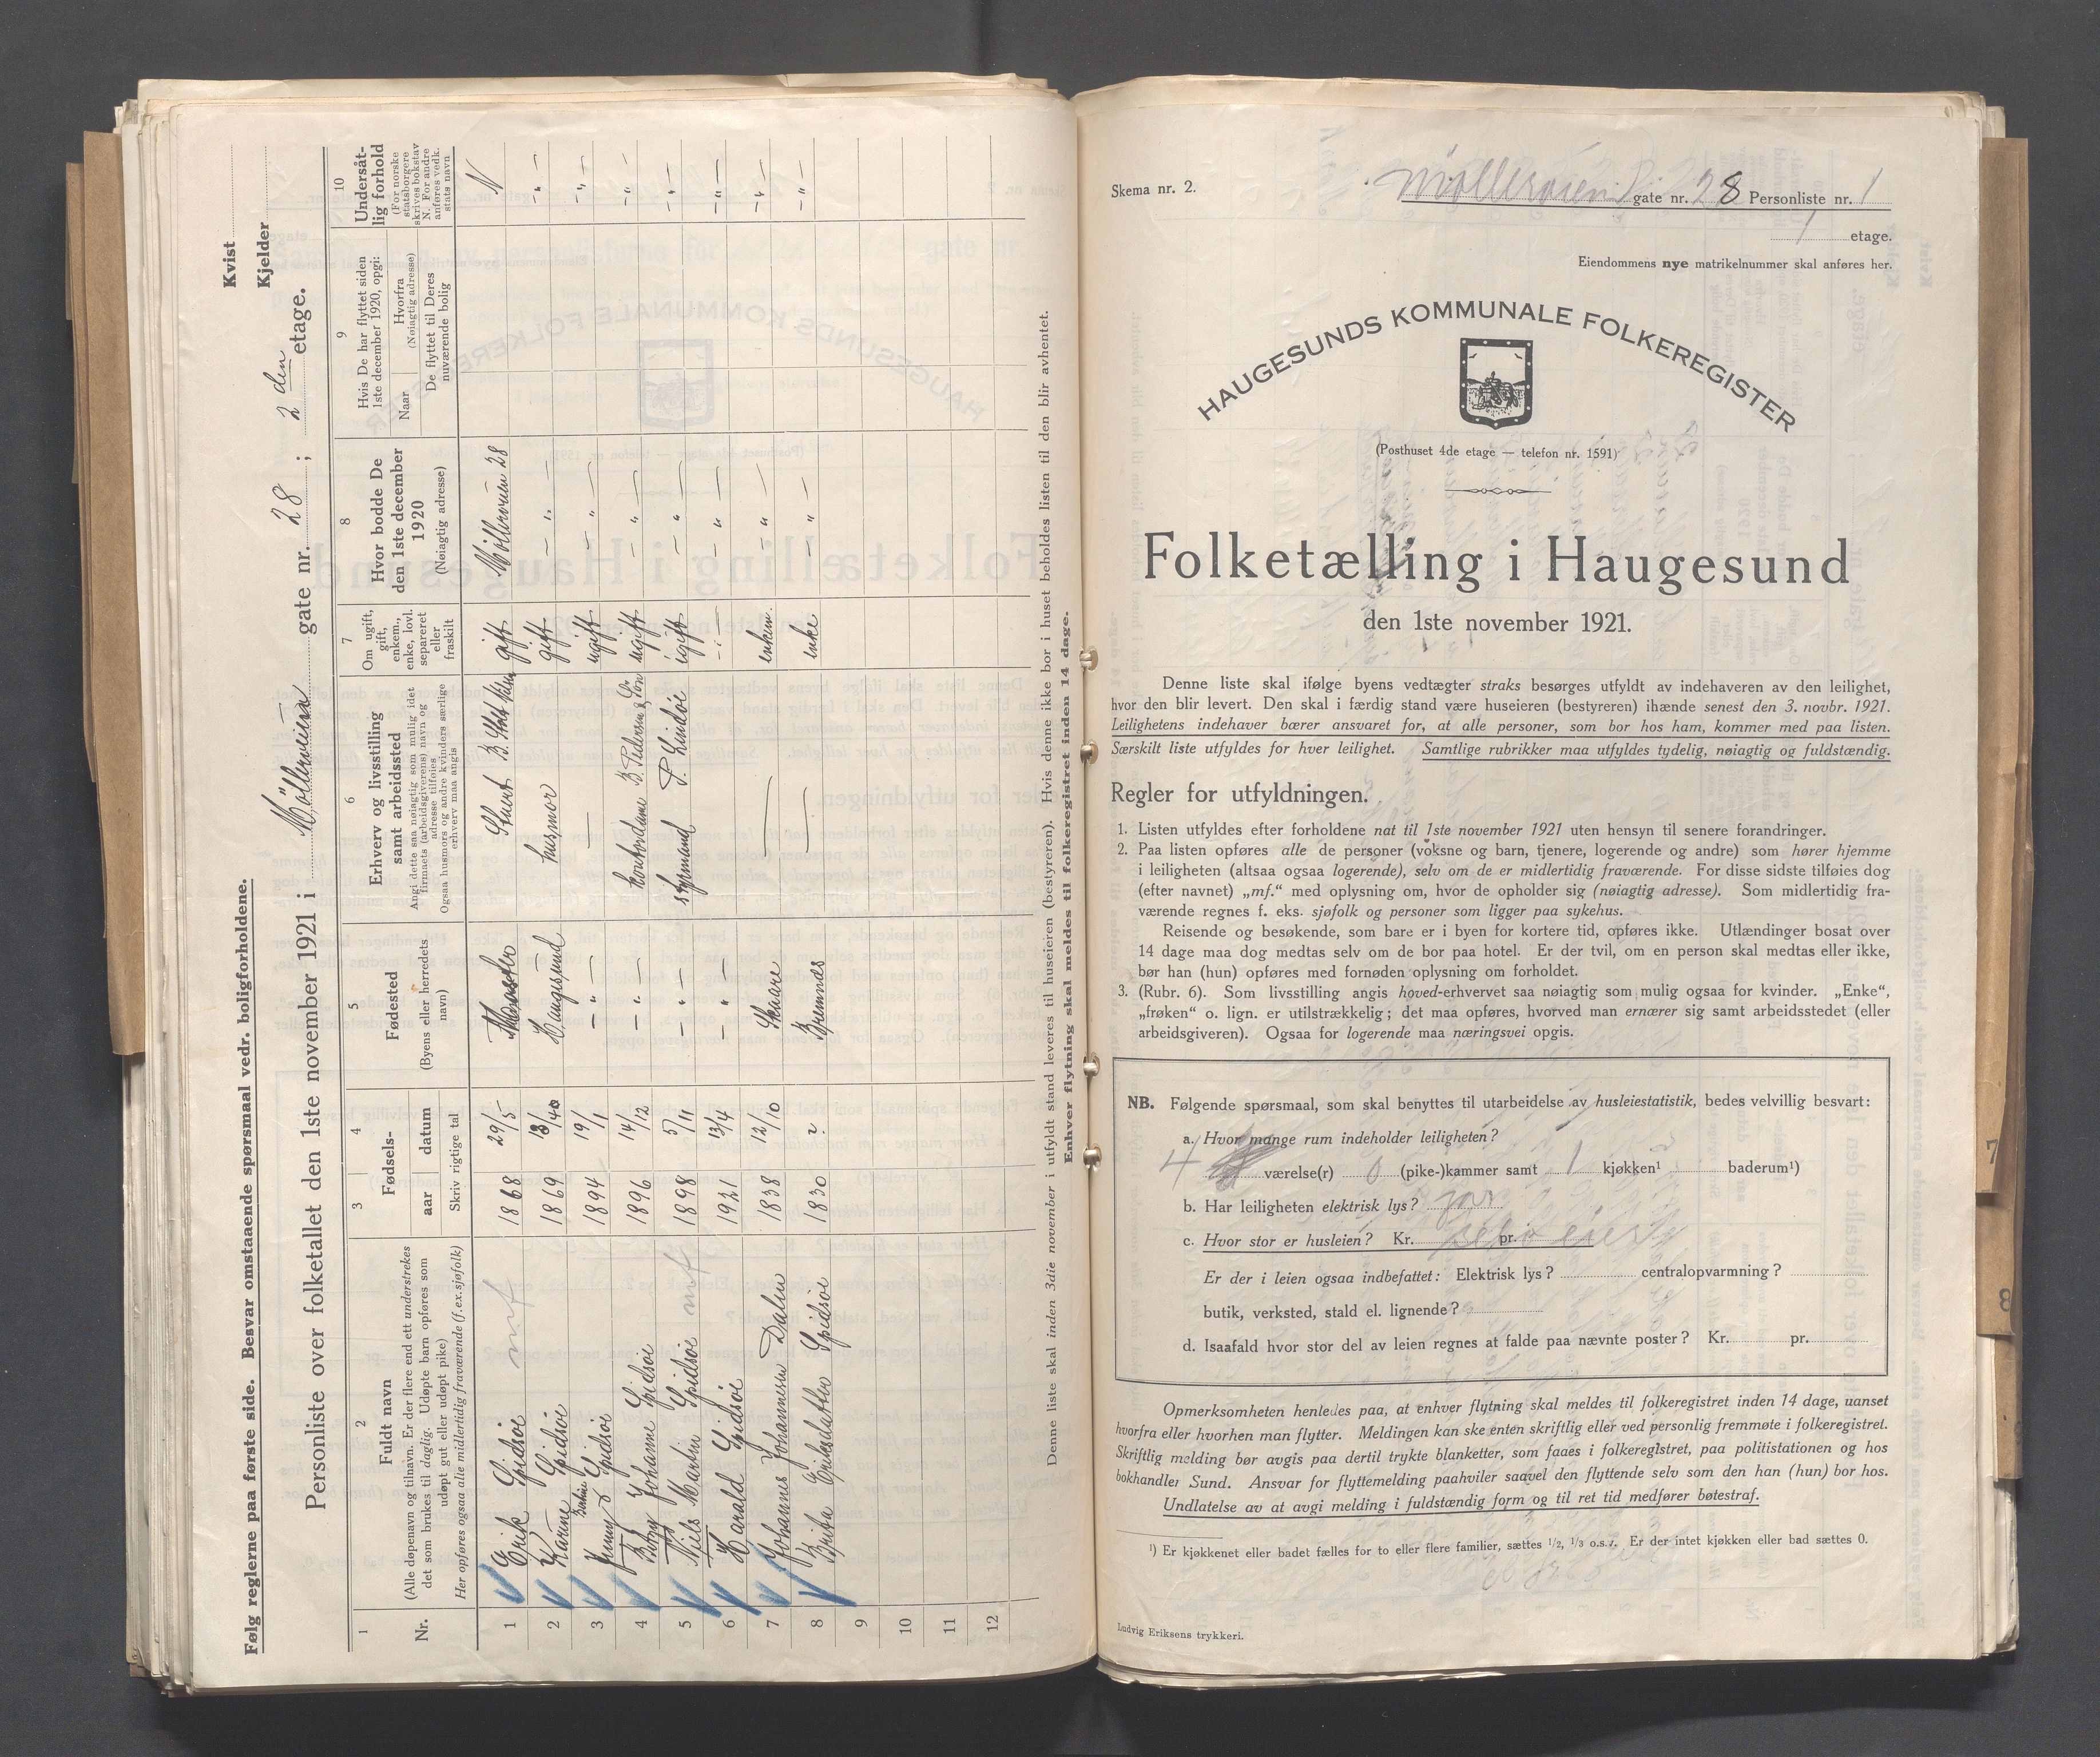 Følg reglerne paa første side. Besvar omstaaende spørsmaal vedr. boligforholdene.
Kvist
Kjelder
Personliste over folketallet den 1ste november 1921 i Möllerveien gate nr. 28 ; 2 den etage.
1 2 3 4 5 6 7 8 9 10
Nr.
Fuldt navn
(Alle døpenavn og tilnavn. Er der flere end ett understrekes
det som brukes til daglig. Udøpte barn opføres som
udøpt gut eller udøpt pike)
Her opføres ogsaa alle midlertidig fraværende (f.ex. sjøfolk)
Fødsels-
aar datum
Skriv rigtige tal
Fødested
(Byens eller herredets
navn)
Erhverv og livsstilling
samt arbeidssted
Angi dette saa nøiagtig som mulig idet
firmaets (arbeidsgiverens) navn og
adresse tilføies
Ogsaa husmors og andre kvinders særlige
erhverv maa angis
Om ugift,
gift,
enkem.,
enke, lovl.
separeret
eller
fraskilt
Hvor bodde De
den 1ste december
1920
(Nøiagtig adresse)
Hvis De har flyttet siden
1ste december 1920, opgi:
Naar
Hvorfra
(Nøiagtig adresse)
De flyttet til Deres
nuværende bolig
Underståt-
lig forhold
(For norske
statsborgere
skrives bokstav
N. For andre
anføres vedk.
stats navn
1 Erik Spidsøi mf 1868 29/5 Stuert gift Möllerveien 28 N
2 Karine Spidsøi 1869 Haugesund husmor gift — " — — " —
3 Spidsøi 1894 19/1 — " — — ugift — " — — " —
4 Borg Johanne Spidsøi 1896 14/12 — " — kontordame B. Pedersen & Søn ugift — " — — " —
5 Niels Martin Spidsøi mf 1898 5/11 — " — styrmand P. Lindøe ugift — " — — " —
6 Harald Spidsøi 1921 13/4 — " — — " — — " — — " —
7 Johannes Johannesen Dalen 1838 12/10 Skaare — enkem. — " — — " —
8 Brita Eriksdatter Spidsøi 1830 ? Bremnæs — enke — " — — " —
9
10
11
12
Denne liste skal inden 3die november i utfyldt stand leveres til huseieren (bestyreren). Hvis denne ikke bor i huset beholdes listen til den blir avhentet.
Enhver flytning skal meldes til folkeregistret inden 14 dage.
Skema nr. 2.
gate nr. 28 Personliste nr. 1
1 etage.
Eiendommens nye matrikelnummer skal anføres her.
HAUGESUNDS KOMMUNALE FOLKEREGISTER
(Posthuset 4de etage — telefon nr. 1591)
Folketælling i Haugesund
den 1ste november 1921.
Denne liste skal ifølge byens vedtægter straks besørges utfyldt av indehaveren av den leilighet,
hvor den blir levert. Den skal i færdig stand være huseieren (bestyreren) ihænde senest den 3. novbr. 1921.
Leilighetens indehaver bærer ansvaret for, at alle personer, som bor hos ham, kommer med paa listen.
Særskilt liste utfyldes for hver leilighet. Samtlige rubrikker maa utfyldes tydelig, nøiagtig og fuldstændig.
Regler for utfyldningen.
1. Listen utfyldes efter forholdene nat til 1ste november 1921 uten hensyn til senere forandringer.
2. Paa listen opføres alle de personer (voksne og barn, tjenere, logerende og andre) som hører hjemme
i leiligheten (altsaa ogsaa logerende), selv om de er midlertidig fraværende. For disse sidste tilføies dog
(efter navnet) „mf.“ med oplysning om, hvor de opholder sig (nøiagtig adresse). Som midlertidig fra-
værende regnes f. eks. sjøfolk og personer som ligger paa sykehus.
Reisende og besøkende, som bare er i byen for kortere tid, opføres ikke. Utlændinger bosat over
14 dage maa dog medtas selv om de bor paa hotel. Er der tvil, om en person skal medtas eller ikke,
bør han (hun) opføres med fornøden oplysning om forholdet.
3. (Rubr. 6). Som livsstilling angis hoved-erhvervet saa nøiagtig som mulig ogsaa for kvinder. „Enke“,
„frøken“ o. lign. er utilstrækkelig; det maa opføres, hvorved man ernærer sig samt arbeidsstedet (eller
arbeidsgiveren). Ogsaa for logerende maa næringsvei opgis.
NB. Følgende spørsmaal, som skal benyttes til utarbeidelse av husleiestatistik, bedes velvillig besvart:
a. Hvor mange rum indeholder leiligheten?
4 værelse(r) 0 (pike-)kammer samt 1 kjøkken¹ baderum¹)
b. Har leiligheten elektrisk lys?
c. Hvor stor er husleien? Kr. pr. selv eier
Er der i leien ogsaa indbefattet: Elektrisk lys? centralopvarmning?
butik, verksted, stald el. lignende?
d. Isaafald hvor stor del av leien regnes at falde paa nævnte poster? Kr. pr.
Opmerksomheten henledes paa, at enhver flytning skal meldes til folkeregistret inden 14 dage, uanset
hvorfra eller hvorhen man flytter. Meldingen kan ske enten skriftlig eller ved personlig fremmøte i folkeregistret.
Skriftlig melding bør avgis paa dertil trykte blanketter, som faaes i folkeregistret, paa politistationen og hos
bokhandler Sund. Ansvar for flyttemelding paahviler saavel den flyttende selv som den han (hun) bor hos.
Undlatelse av at avgi melding i fuldstændig form og til ret tid medfører bøtestraf.
¹) Er kjøkkenet eller badet fælles for to eller flere familier, sættes 1/2, 1/3 o.s.v. Er der intet kjøkken eller bad sættes 0.
Ludvig Eriksens trykkeri.
7
8